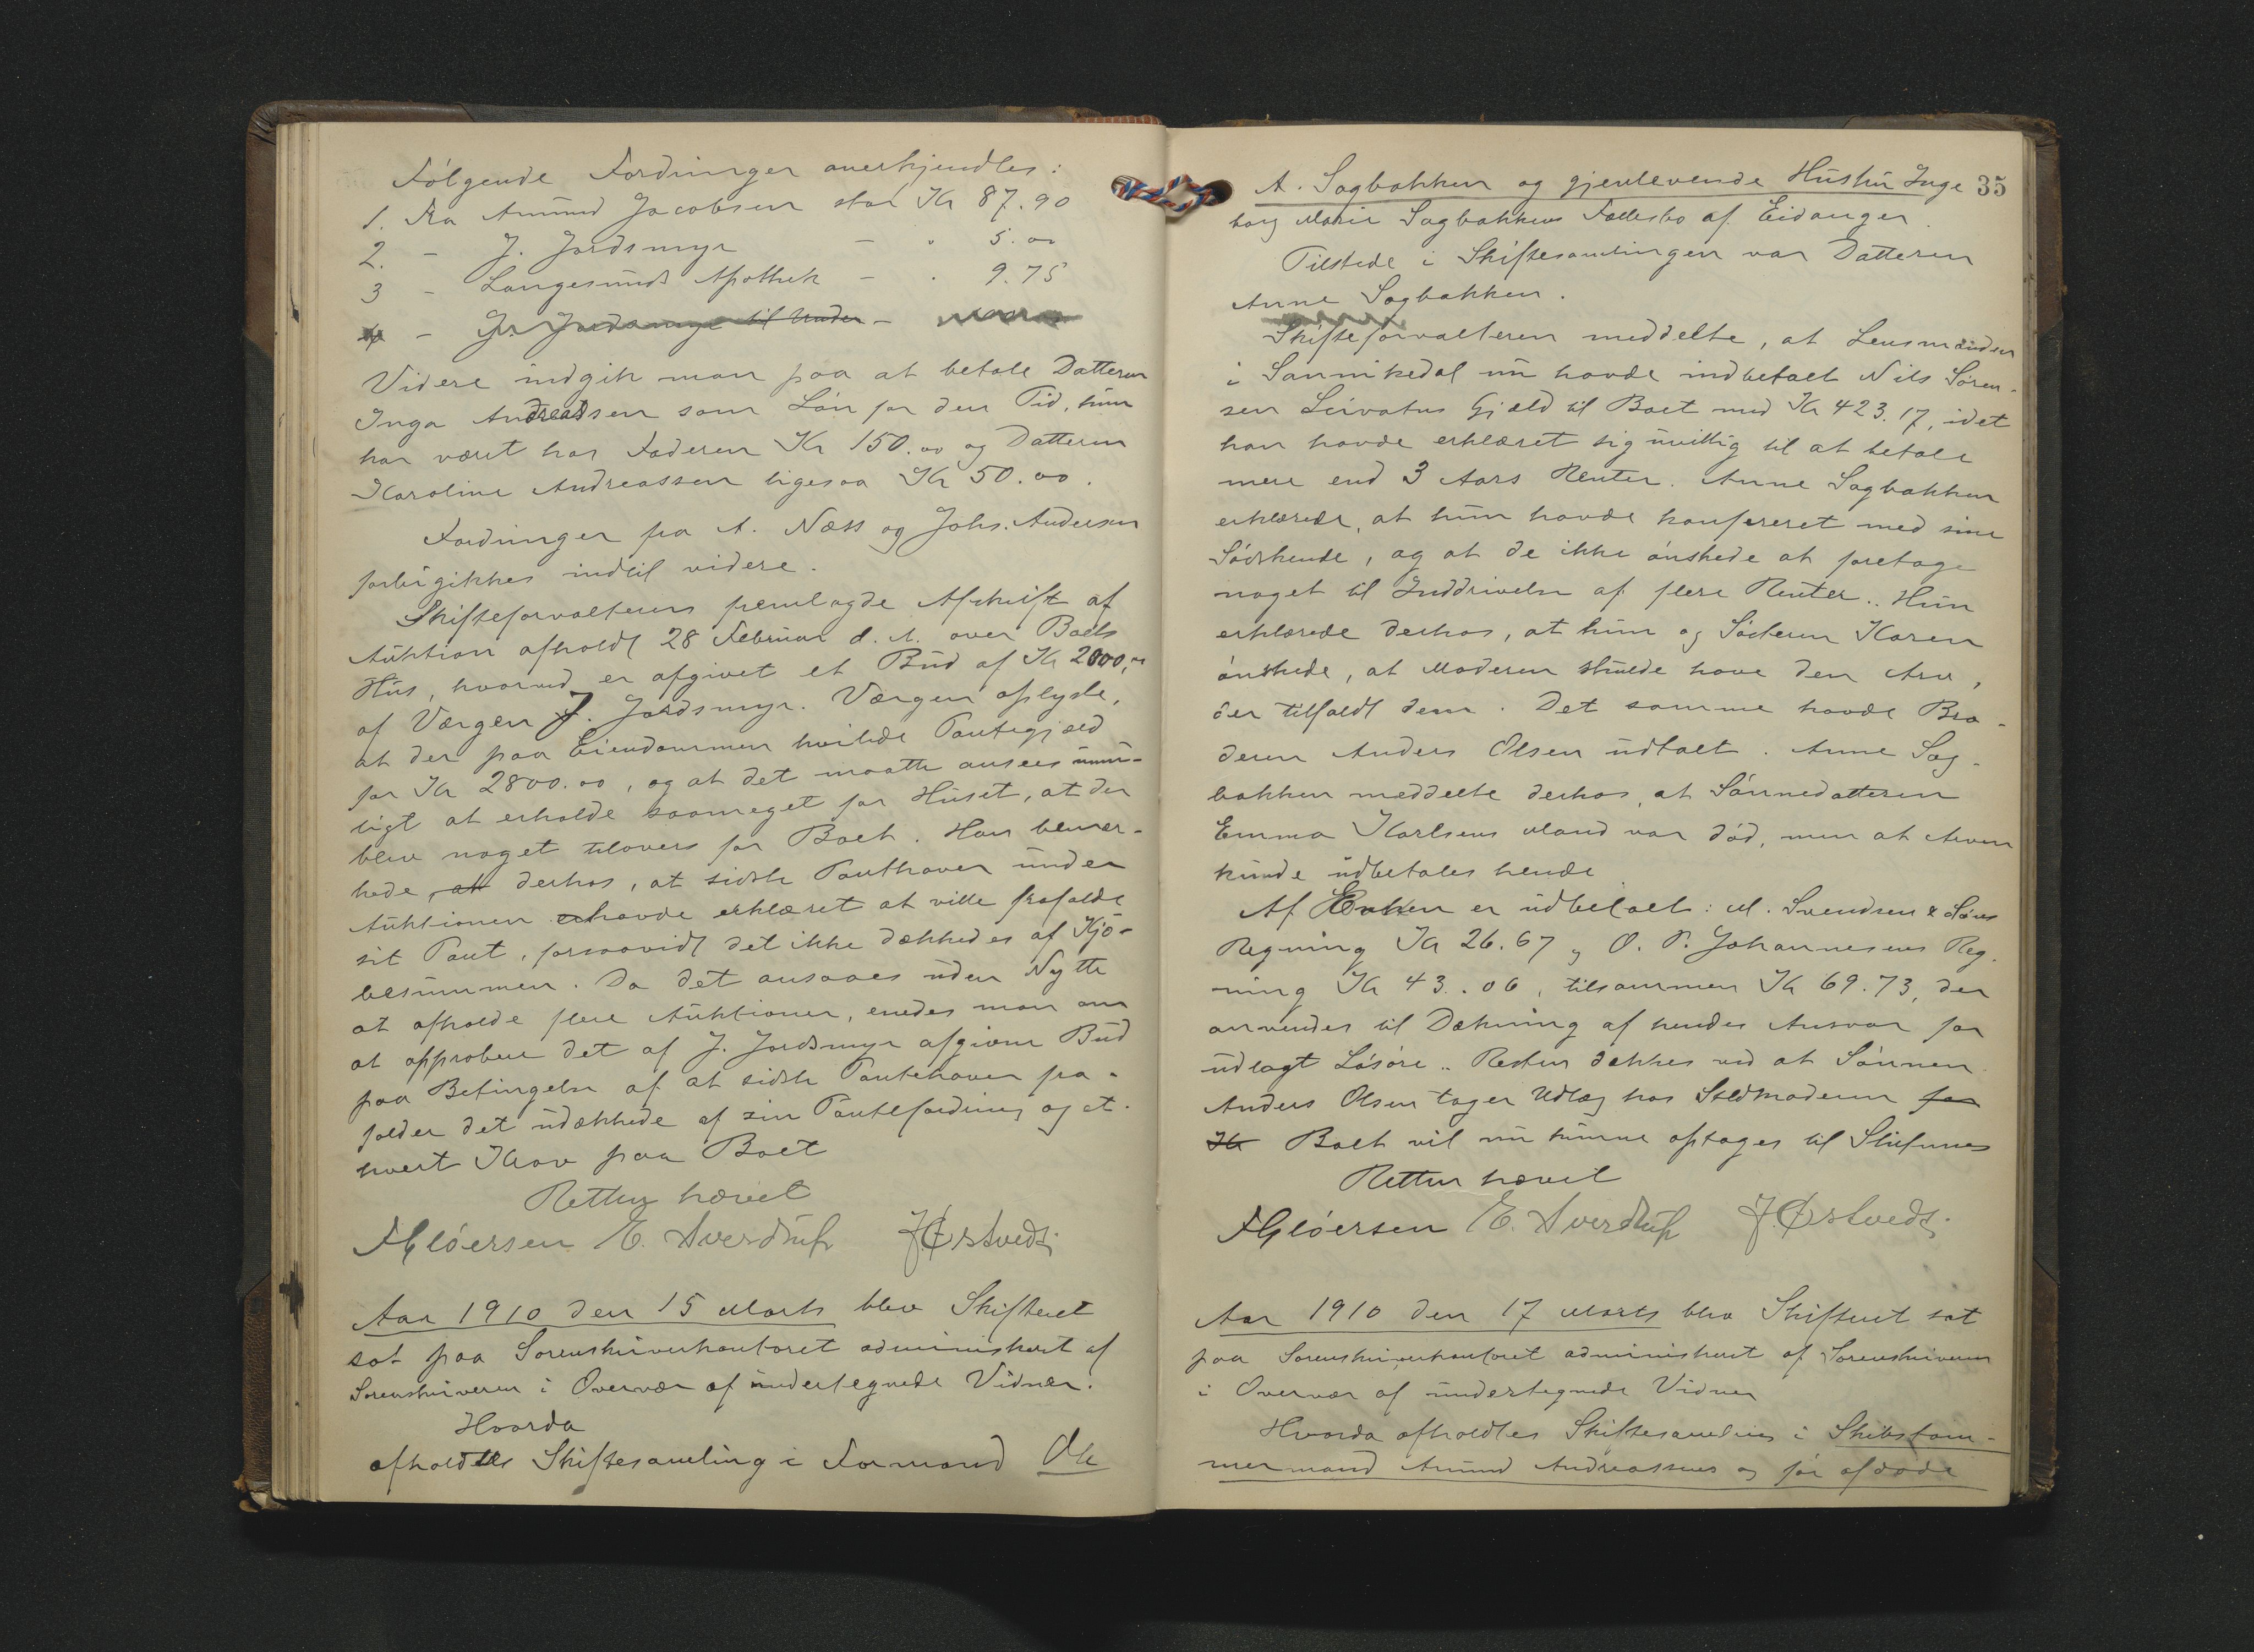 Følgende Fordringer anerkjendtes:
1. Fra Amund Jacobsen stor Kr 87.90
2. - J. Jordsmyr - " 5.00
3 - Langesunds Apothek - " 9.75
4 - J. Jordsmyr til Under -
Videre indgik man paa at betale Datteren
Inga Andreassen som Løn for den Tid, hun
har været hos Faderen Kr 150.00 og Datteren
Karoline Andreassen ligesaa Kr 50.00.
Fordringer fra A. Næss og Johs. Andersen
forbigikkes indtil videre.
Skifteforvalteren fremlagde Afskrift af
Auktion afholdt 28 Februar d. A. over Boets
Hus, hvorved er afgivet et Bud af Kr 2000,00
af Værgen J. Jordsmyr. Værgen oplyste,
at der paa Eiendommen hvilede Pantegjæld
for Kr 2800.00, og at det maatte ansees umu-
ligt at erholde saameget for Huset, at der
blev noget tilovers for Boet. Han bemær-
kede, at derhos, at sidste Panthaver under
Auktionen havde erklæret at ville frafalde
sit Pant, forsaavidt det ikke dækkedes af Kjø-
besummen. Da det ansaaes uden Nytte
at afholde flere Auktioner, enedes man om
at approbere det af J. Jordsmyr afgivne Bud
paa Betingelse af at sidste Pantehaver fra-
falder det udækkede af sin Pantefordring og et-
hvert Krav paa Boet
Retten hævet
F Gløersen E. Sverdrup J. Østvedt.
Aar 1910 den 15 Marts blev Skifteret
sat paa Sorenskriverkontoret administreret af
Sorenskriveren i Overvær af undertegnede Vidner.
Hvorda
afholdtes Skiftesamling i Formand Ole
35
A. Sagbakken og gjenlevende Hustru Inge
borg Marie Sagbakkens Fællesbo af Eidanger.
Tilstede i Skiftesamlingen var Datteren
Anne Sagbakken.
Skifteforvalteren meddelte, at Lensmanden
i Sannikedal nu havde indbetalt Nils Søren-
sen Leivatns Gjæld til Boet med Kr 423.17, idet
han havde erklæret sig uvillig til at betale
mere end 3 Aars Renter. Anne Sagbakken
erklærede, at hun havde konfereret med sine
Sødskende, og at de ikke ønskede at foretage
noget til Inddrivelse af flere Renter. Hun
erklærede derhos, at hun og Søsteren Karen
ønskede, at Moderen skulde have den Arv,
der tilfaldt dem. Det samme havde Bro-
deren Anders Olsen udtalt. Anne Sag-
bakken meddelte derhos, at Sønnedatteren
Emma Karlsens Mand var død, men at Arven
kunde udbetales hende
Af Enken er udbetalt: M. Svendsen & Søns
Regning Kr 26.67 og O. P. Johannesens Reg-
ning Kr 43.06, tilsammen Kr 69.73, der
anvendes til Dækning af hendes Ansvar for
udlagt Løsøre. Resten dækkes ved at Sønnen
Anders Olsen tager Udlæg hos Stedmoderen for
Kr Boet vil nu kunne optages til Slutning
Retten hævet
F Gløersen E. Sverdrup J. Østvedt.
Aar 1910 den 17 Marts blev Skifteret sat
paa Sorenskriverkontoret administreret af Sorenskriveren
i Overvær af undertegnede Vidner
Hvorda afholdtes Skiftesamling i Skibstøm-
mermand Amund Andreassens og før afdøde